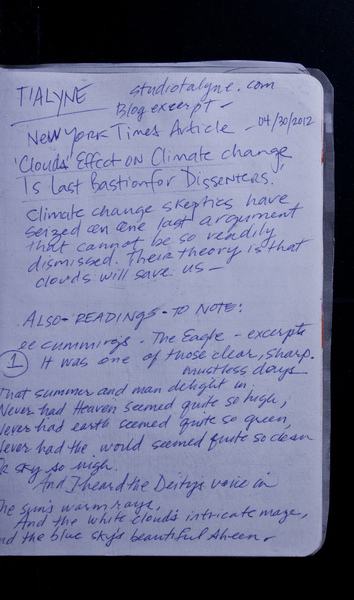 TIALYNE
studiotalyne.com
Blog excerpt -
New York Times Article - 04/30/2012
'Clouds' Effect on Climate change
Is Last Bastion for Dissenters.'
Climate change skeptics have
seized on one last argument
that cannot be so readily
dismissed. Their theory is that
clouds will save us -
ALSO - READINGS - TO NOTE:
ee cummings. The Eagle - excerpt
1 It was one of those clear, sharp.
mustless days
That summer and man delight in.
Never had Heaven seemed quite so high,
Never had earth seemed quite so green,
Never had the world seemed quite so clean
sky so nigh.
And I heard the Deity's voice in
The sun's warm rays,
And the white cloud's intricate maze,
And the blue sky's beautiful sheen.